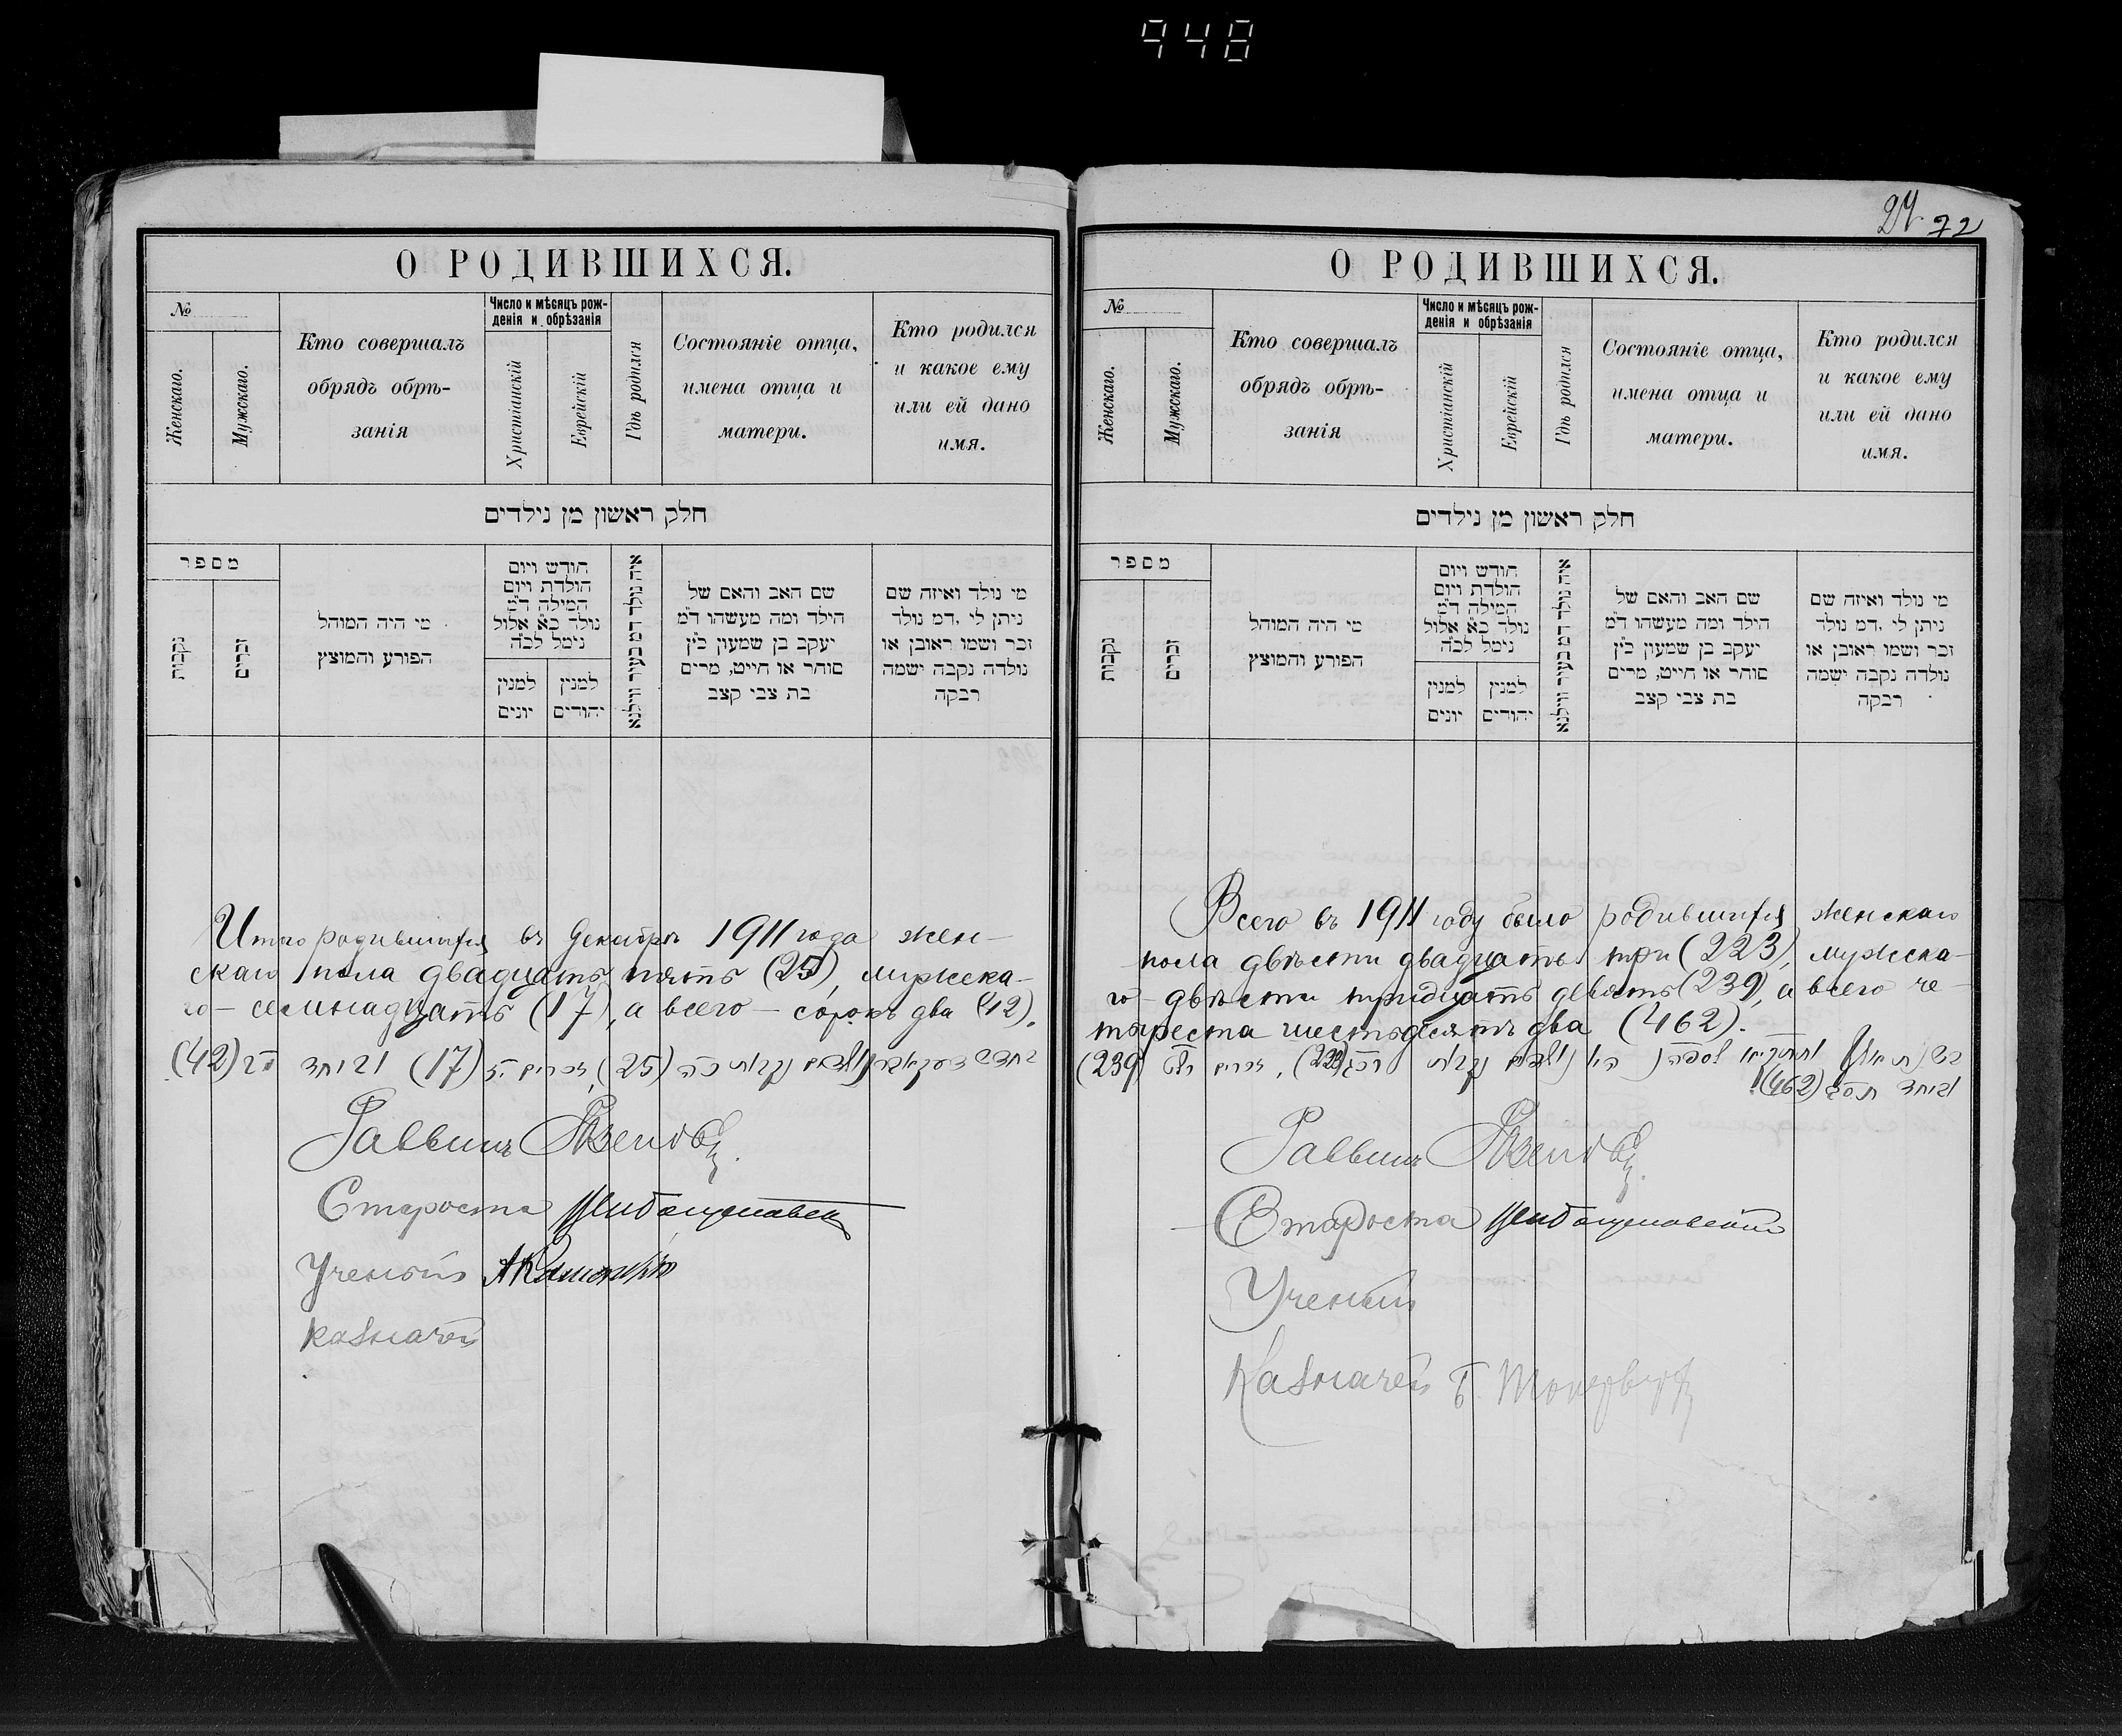 948
О РОДИВШИХСЯ.
№
Женскаго.
Мужскаго.
Кто совершалъ
обрядъ обрѣ-
занія
Число и мѣсяцъ рож-
денія и обрѣзанія
Христіанскій
Еврейскій
Гдѣ родился
Состояніе отца,
имена отца и
матери.
Кто родился
и какое ему
или ей дано
имя.
חלק ראשון מן נילדים
מספר
נקבות
זכרים
מי היה המוהל
הפורע והמוצץ
חודש ויום
הולדת ויום
המילה ד״מ
נולד כ״א אלול
נימל לכ״ה
למנין
יונים
למנין
יהודים
איה נולד דמ בעיר ווילנא
שם האב והאם של
הילד ומה מעשהו ד״מ
יעקב בן שמעון כ״ץ
סוחר או חייט, מרים
בת צבי קצב
מי נולד ואיזה שם
ניתן לי ,דמ נולד
זכר ושמו ראובן או
נולדה נקבה ישמה
רבקה
Итого родившихся въ Декабрѣ 1911 года жен-
скаго пола двадцать пять (25), мужска-
го - семнадцать (17), а всего - сорокъ два (42).
נקבות כה (25), זכרים יז (17) וביחד מב (42)
Раввинъ
Староста
Ученый
Казначей
24 72
О РОДИВШИХСЯ.
№
Женскаго.
Мужскаго.
Кто совершалъ
обрядъ обрѣ-
занія
Число и мѣсяцъ рож-
денія и обрѣзанія
Христіанскій
Еврейскій
Гдѣ родился
Состояніе отца,
имена отца и
матери.
Кто родился
и какое ему
или ей дано
имя.
חלק ראשון מן נילדים
מספר
נקבות
זכרים
מי היה המוהל
הפורע והמוצץ
חודש ויום
הולדת ויום
המילה ד״מ
נולד כ״א אלול
נימל לכ״ה
למנין
יונים
למנין
יהודים
איה נולד דמ בעיר ווילנא
שם האב והאם של
הילד ומה מעשהו ד״מ
יעקב בן שמעון כ״ץ
סוחר או חייט, מרים
בת צבי קצב
מי נולד ואיזה שם
ניתן לי ,דמ נולד
זכר ושמו ראובן או
נולדה נקבה ישמה
רבקה
Всего въ 1911 году было родившихся женскаго
пола двѣсти двадцать три (223), мужска-
го - двѣсти тридцать девять (239), а всего че-
тыреста шестьдесятъ два (462).
נקבות רכג (223), זכרים רלט (239)
וביחד תסב (462)
Раввинъ
Староста
Ученый
Казначей